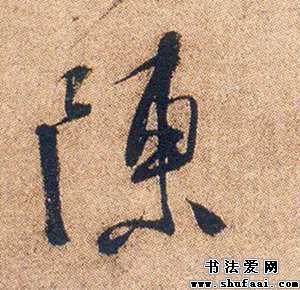 陳
书法爱网
www.shufaai.com